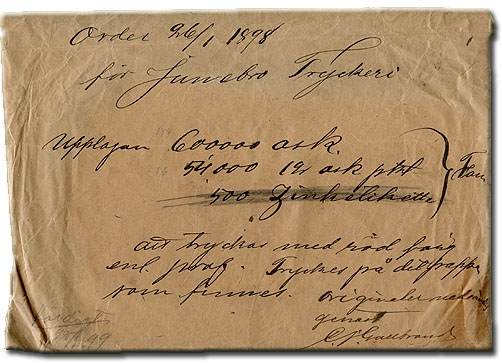 Order 26/1 1898
för Junebro Tryckeri
Upplagan 600000 ask
54000 12 ask pkt
500 Zinketikette
att tryckas med röd färg
enl. prof. Tryckes på det papper
som finnes. originalen
genast
99